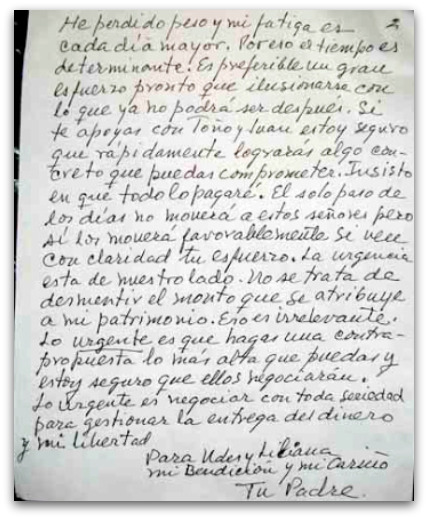 2
He perdido peso y mi fatiga es
cada día mayor. Por eso el tiempo es
determinante. Es preferible un gran
esfuerzo pronto que ilusionarse con
lo que ya no podrá ser después. Si
te apoyas con Toño y Juan estoy seguro
que rápidamente lograrás algo con-
creto que puedas comprometer. Insisto
en que todo lo pagaré. El solo paso de
los días no moverá a estos señores pero
sí los moverá favorablemente si ven
con claridad tu esfuerzo. La urgencia
esta de nuestro lado. No se trata de
desmentir el monto que se atribuye
a mi patrimonio. Eso es irrelevante.
Lo urgente es que hagas una contra-
propuesta lo más alta que puedas y
estoy seguro que ellos negociarán.
Lo urgente es negociar con toda seriedad
para gestionar la entrega del dinero
y mi libertad
Para Udes y Liliana
mi Bendición y mi Cariño
Tu Padre.